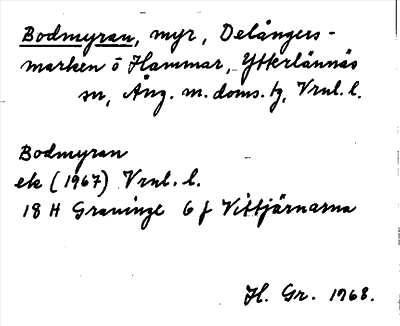 Bodmyran, myr, Delångers-
marken ö Hammar, Ytterlännäs
sn, Ång. m. doms. tg, Vrnl. l.
Bodmyran
ek (1967) Vrnl. l.
18 H Graninge 6 f Vittjärnarna
H. Gr. 1968.